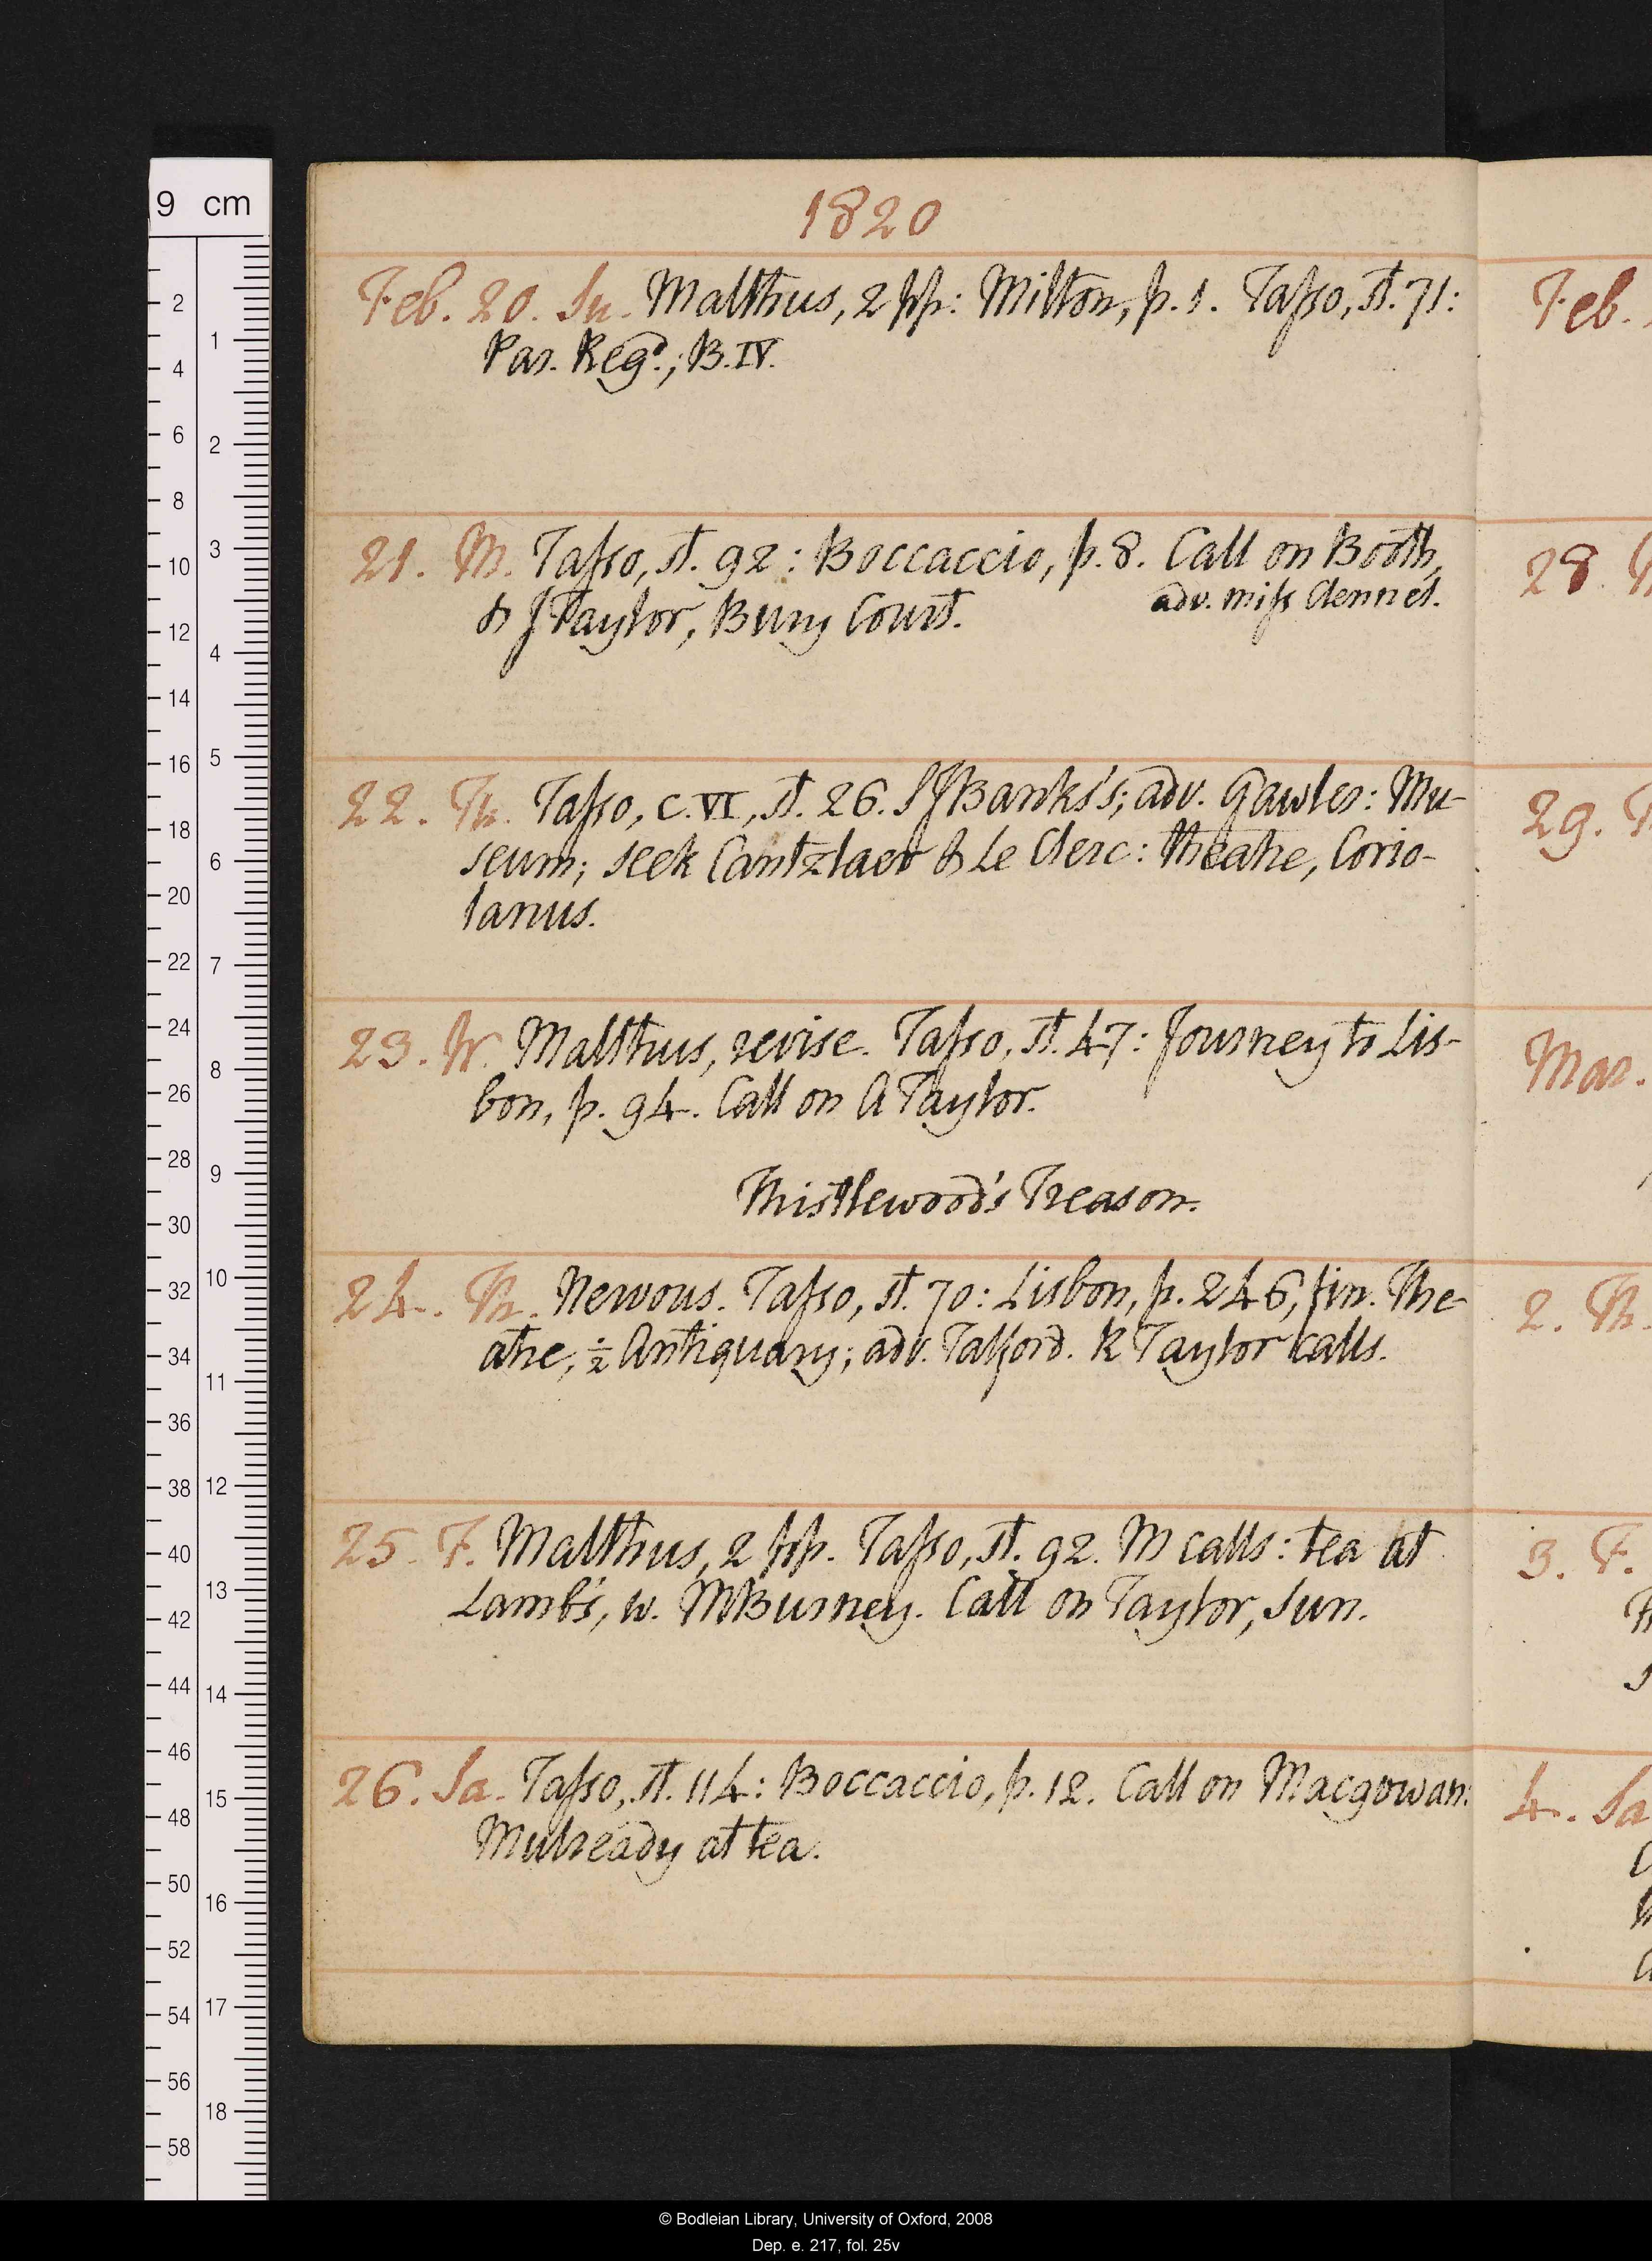 1820
Feb. 20. Su. Malthus, 2 pp: Milton, p. 1. Tasso, st. 71:
Par. Regd.; B. IV.
21. M. Tasso, st. 92: Boccaccio, p. 8. Call on Booth,
& J Taylor, Bury Court. adv. miss Dennet.
22. Tu. Tasso, C. VI, st. 26. S J Banks's; adv. Gawler: Mu-
seum; seek Cantzlaer & Le Clerc: theatre, Corio-
lanus.
23. W. Malthus, revise. Tasso, st. 47: Journey to Lis-
bon, p. 94. Call on A Taylor.
Thistlewood's Treason.
24. Th. Nervous. Tasso, st. 70: Lisbon, p. 246, fin. The-
atre, ½ Antiquary; adv. Talford. R Taylor calls.
25. F. Malthus, 2 pp. Tasso, st. 92. M calls: tea at
Lamb's, w. MBurney. Call on Taylor, Jun.
26. Sa. Tasso, st. 114: Boccaccio, p. 12. Call on Macgowan:
Mulready at tea.
Feb.
28
29.
Mar.
2. Th.
3. F.
4. Sa
9 cm
2
4
6
8
10
12
14
16
18
20
22
24
26
28
30
32
34
36
38
40
42
44
46
48
50
52
54
56
58
1
2
3
4
5
6
7
8
9
10
11
12
13
14
15
16
17
18
© Bodleian Library, University of Oxford, 2008
Dep. e. 217, fol. 25v